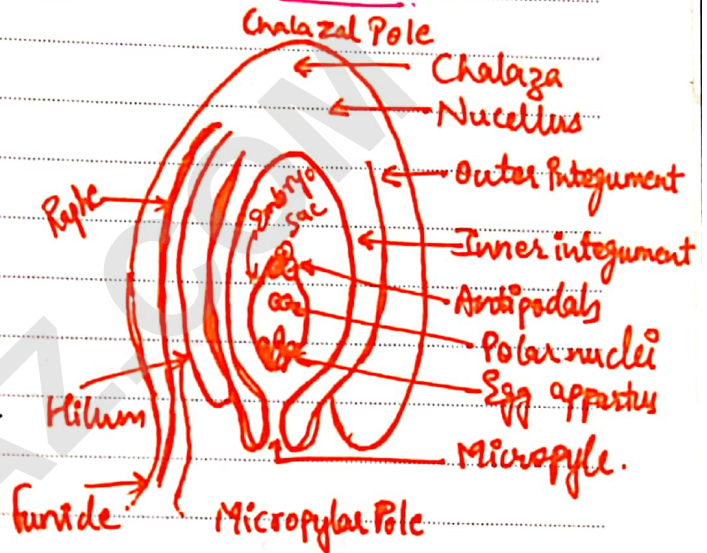 Chalazal Pole
Chalaza
Nucellus
Outer Integument
Raphe
Embryo
Sac
Inner integument
Antipodals
Polar nuclei
Egg appartus
Hilum
Micropyle.
Funide
Micropylar Pole
AZ.COM